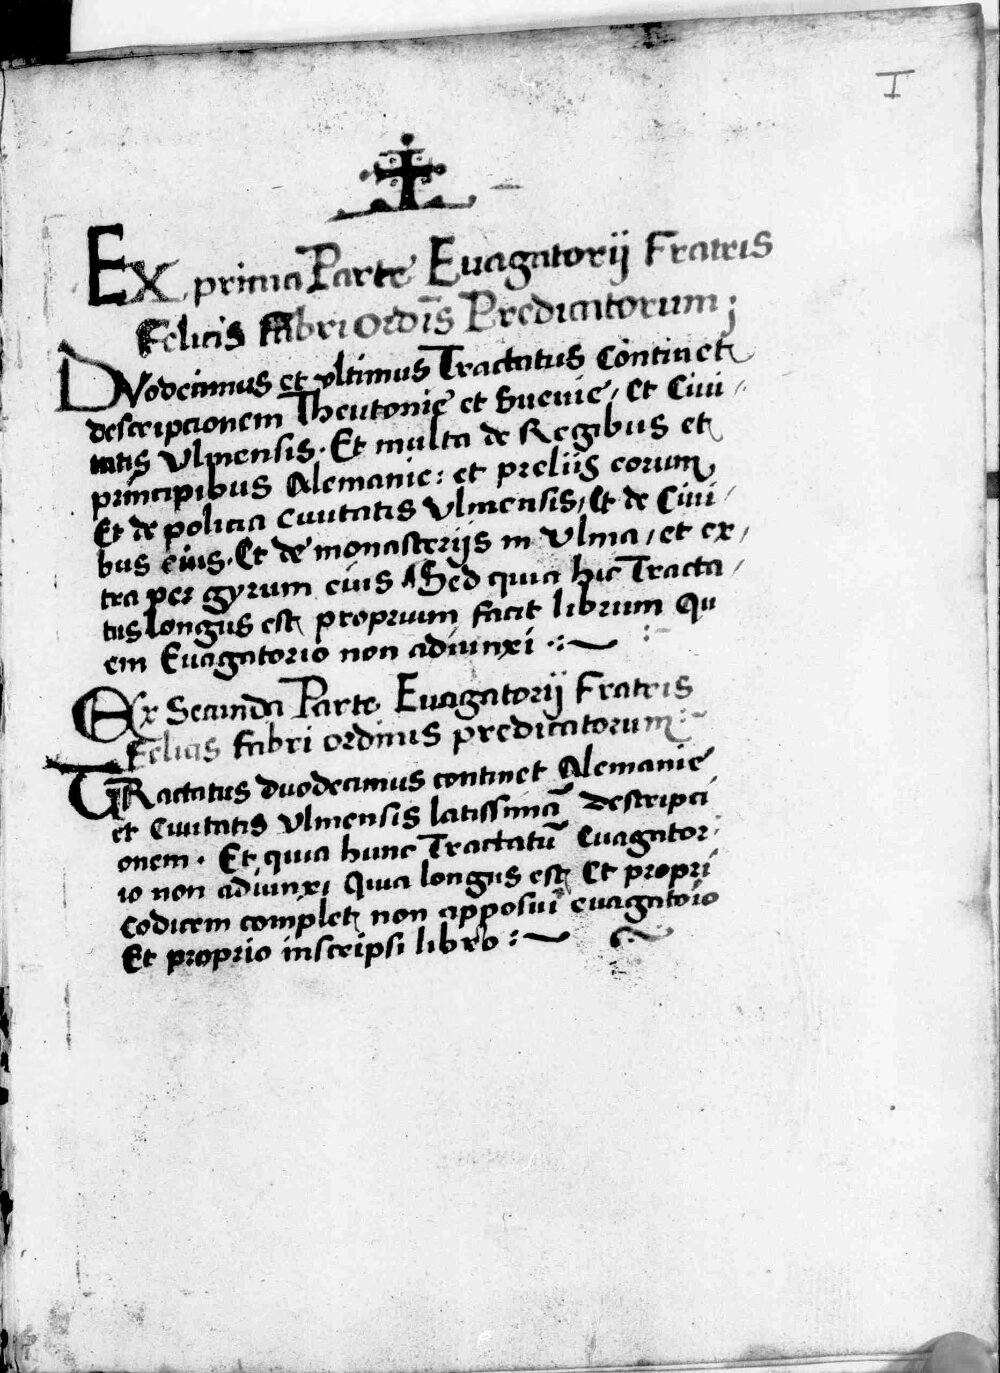 I
Ex prima Parte Evagatorij Fratris
Felicis fabri Ordīs Predicatorum;
DVodecimus et vltimus Tractatus Continet
descripcionem Theutonie et Suevie, Et Ciui-
tatis Vlmensis. Et multa de Regibus et
principibus Alemanie: et prelijs eorum
Et de policia Ciuitatis Vlmensis, Et de Ciui-
bus eius. Et de monasterijs in Vlma, et ex-
tra per gyrum eius Sed quia hic Tracta-
tus longus est proprium facit librum Qu
em Evagatorio non adiunxi
Ex Secunda Parte Evagatorij Fratris
Felicis fabri ordinis predicatorum
TRactatus duodecimus continet Alemanie
et Ciuitatis Vlmensis latissimā descripci
onem. Et quia hunc Tractatū Evagator-
io non adiunxi Quia longus est Et propri
Codicem complet non apposui evagatoio
Et proprio inscripsi libro